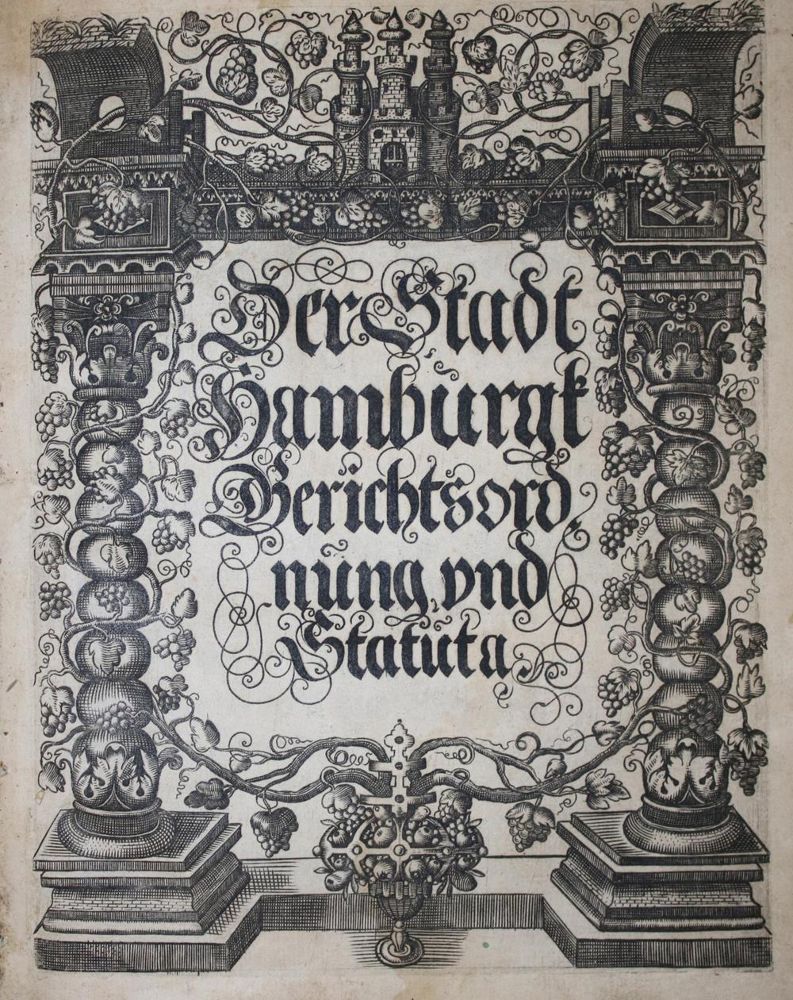 Der Stadt
Hamburgk
Gerichtsord,
nŭng vnd
Statŭta